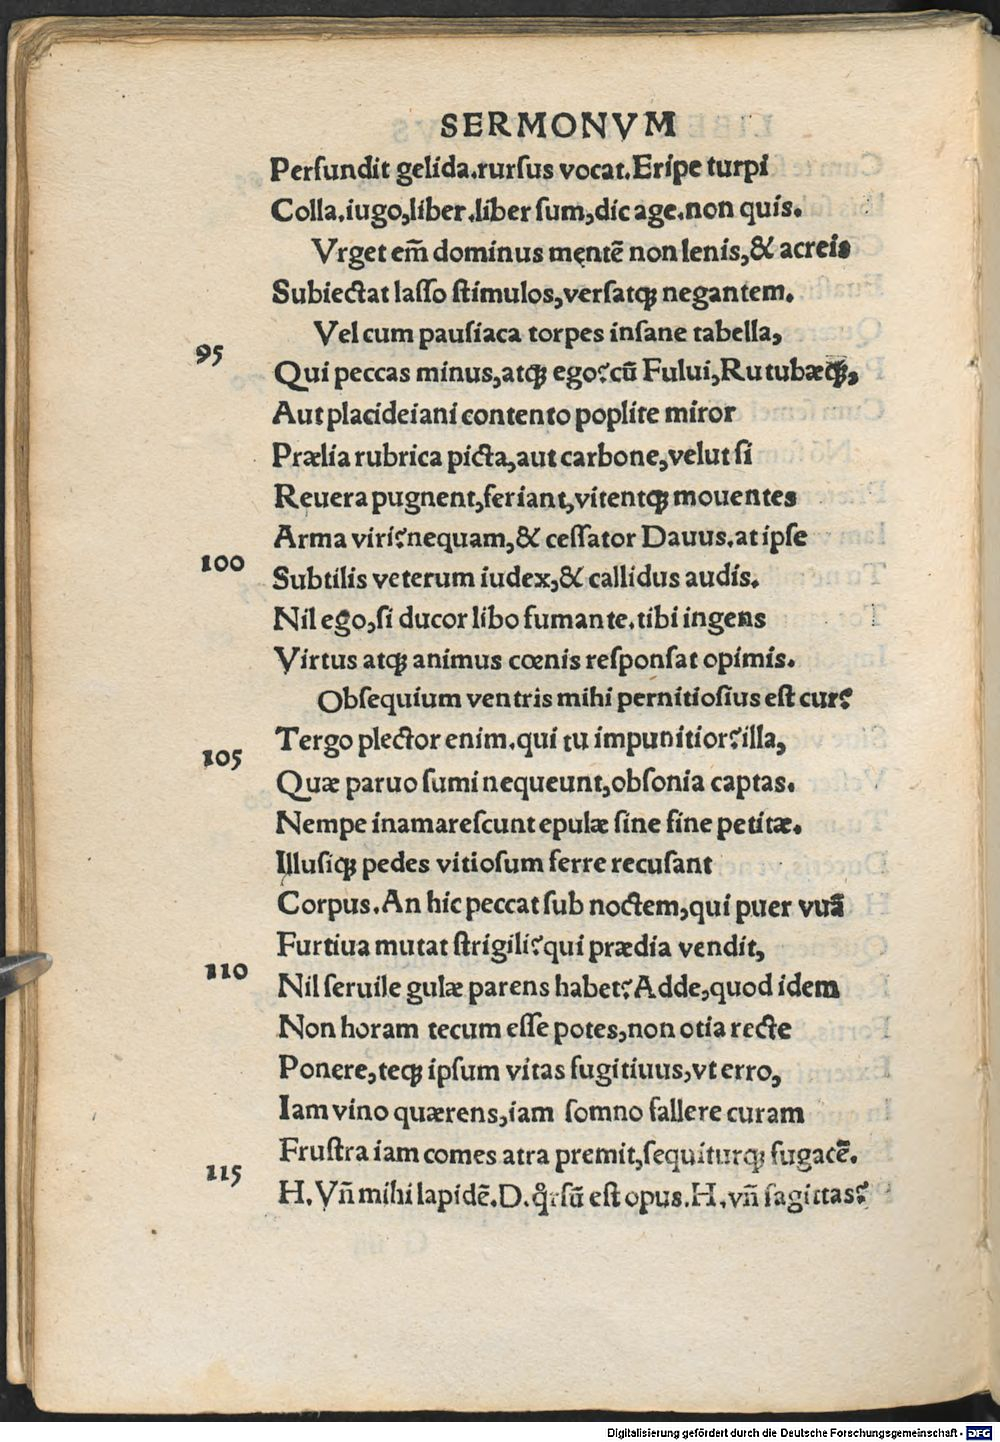 SERMONVM
Perfundit gelida.rursus vocat.Eripe turpi
Colla.iugo,liber.liber sum,dic age.non quis.
Vrget em̃ dominus mentẽ non lenis,& acreis
Subiectat lasso stimulos,versatqꝫ negantem.
Vel cum pausiaca torpes insane tabella,
95
Qui peccas minus,atqꝫ ego?cũ Fului,Rutubæqꝫ,
Aut placideiani contento poplite miror
Prælia rubrica picta,aut carbone,velut si
Reuera pugnent,feriant,vitentqꝫ mouentes
Arma viri?nequam,& cessator Dauus.at ipse
100
Subtilis veterum iudex,& callidus audis.
Nil ego,si ducor libo fumante.tibi ingens
Virtus atqꝫ animus cœnis responsat opimis.
Obsequium ventris mihi pernitiosius est cur?
Tergo plector enim.qui tu impunitior?illa,
105
Quæ paruo sumi nequeunt,obsonia captas.
Nempe inamarescunt epulæ sine fine petitæ.
Illusiqꝫ pedes vitiosum ferre recusant
Corpus.An hic peccat sub noctem,qui puer vuã
Furtiua mutat strigili?qui prædia vendit,
110
Nil seruile gulæ parens habet?Adde,quod idem
Non horam tecum esse potes,non otia recte
Ponere,teqꝫ ipsum vitas fugitiuus,vt erro,
Iam vino quærens,iam somno fallere curam
Frustra iam comes atra premit,sequiturqꝫ fugacẽ.
115
H.Vñ mihi lapidẽ.D.q̊rsũ est opus.H.vñ sagittas?
Digitalisierung gefördert durch die Deutsche Forschungsgemeinschaft - DFG